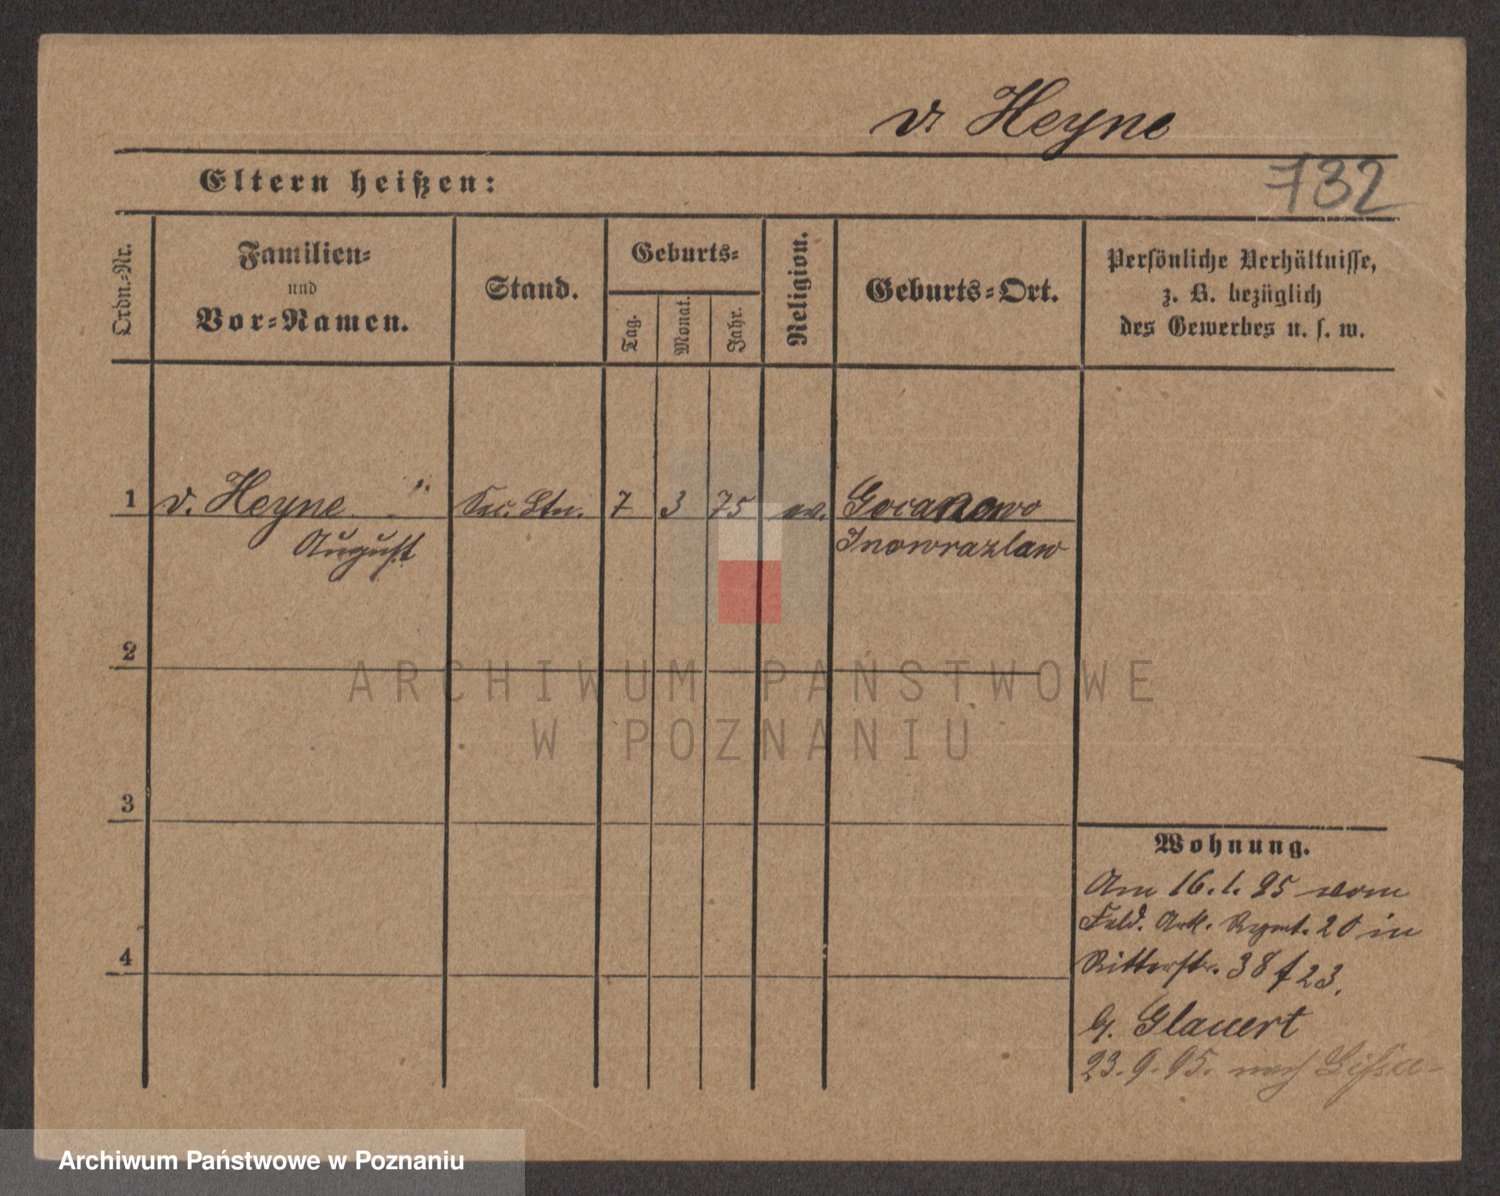 v. Heyne
732
Eltern heißen:
Ordn.-Nr.
Familien-
und
Vor-Namen.
Stand.
Geburts-
Tag.
Monat.
Jahr.
Religion.
Geburts-Ort.
Persönliche Verhältnisse,
z. B. bezüglich
des Gewerbes u. s. w.
1 v. Heyne Sec. Ltn. 7 3 75 ev. Gocanowo
August Inowrazlaw
2
3
4
ARCHIWUM PAŃSTWOWE
W POZNANIU
Wohnung.
Am 16.1.95 vom
Feld. Art. Regmt. 20 in
Ritterstr. 38 f 23.
b/. Glauert
23.9.95. nach Lissa
Archiwum Państwowe w Poznaniu